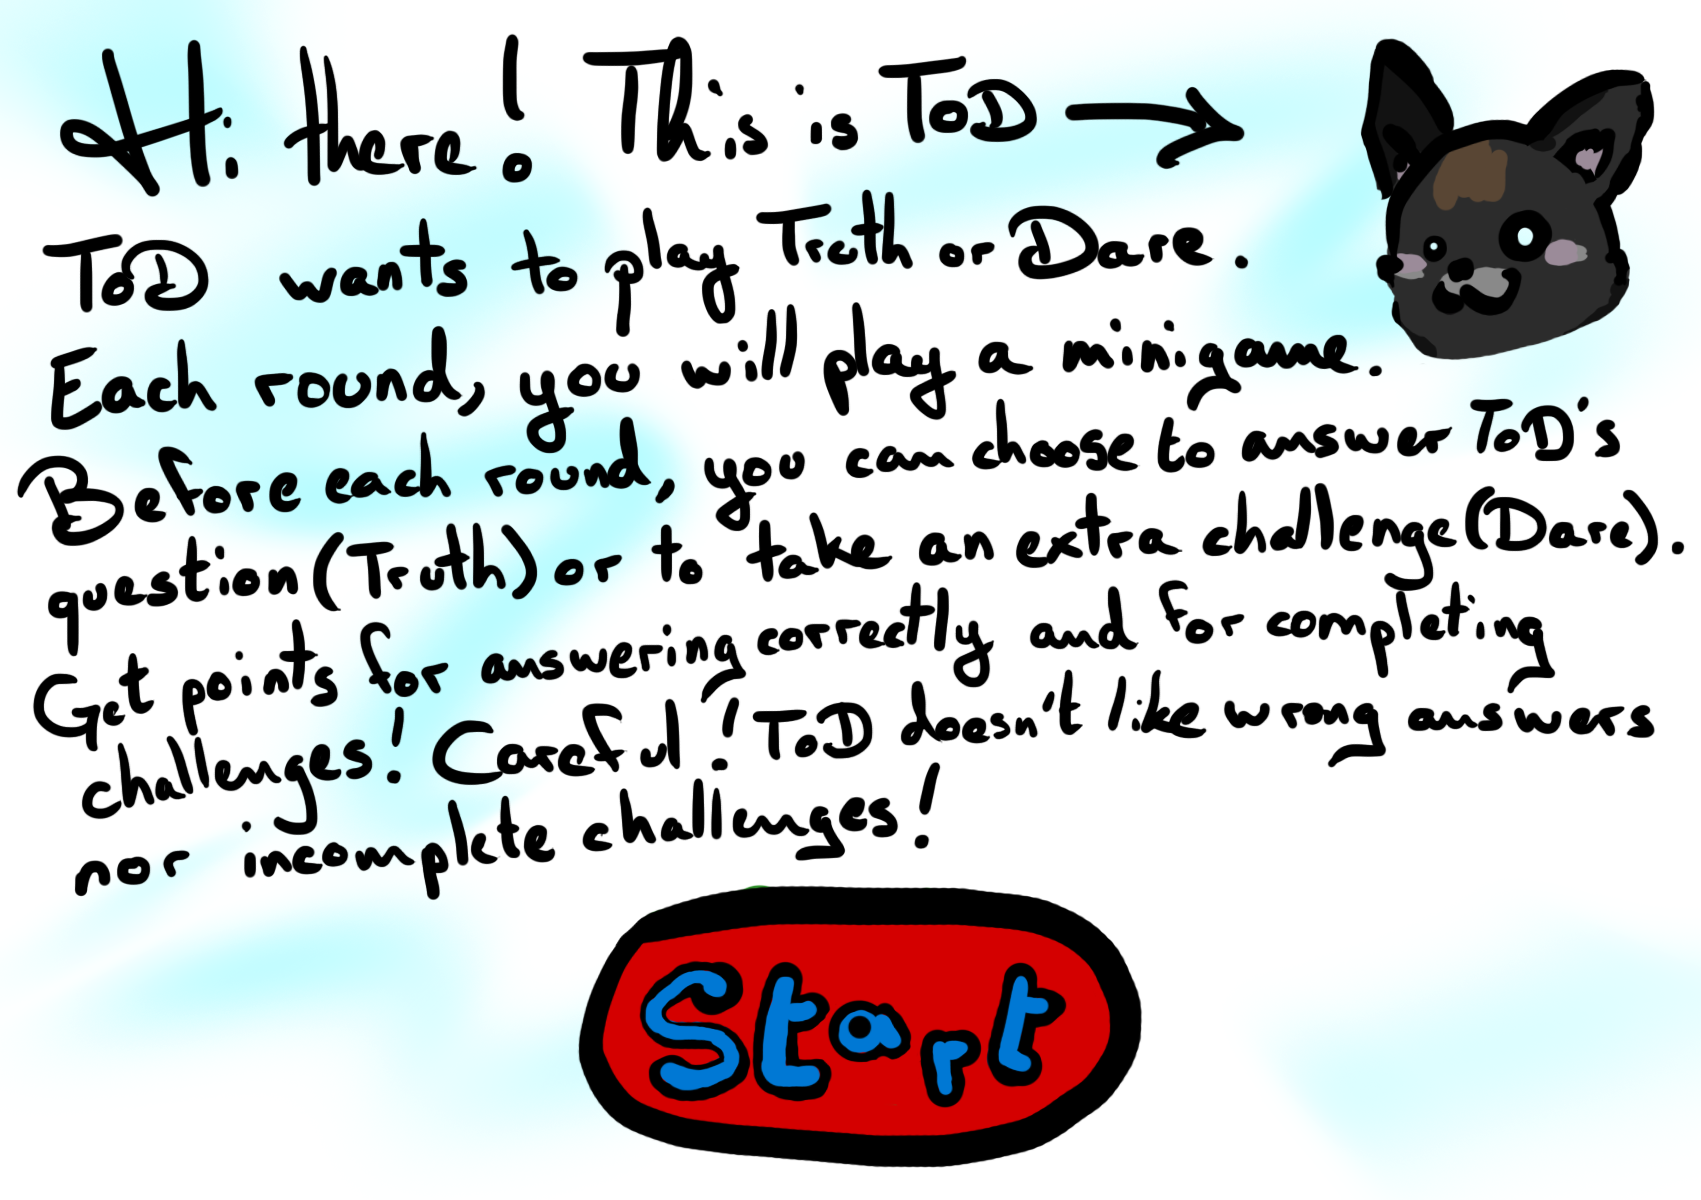 Hi there! This is ToD
ToD wants to play Truth or Dare.
Each round, you will play a minigame.
Before each round, you can choose to answer ToD's
question (Truth) or to take an extra challenge (Dare).
Get points for answering correctly and for completing
challenges! Careful! ToD doesn't like wrong answers
nor incomplete challenges!
Start